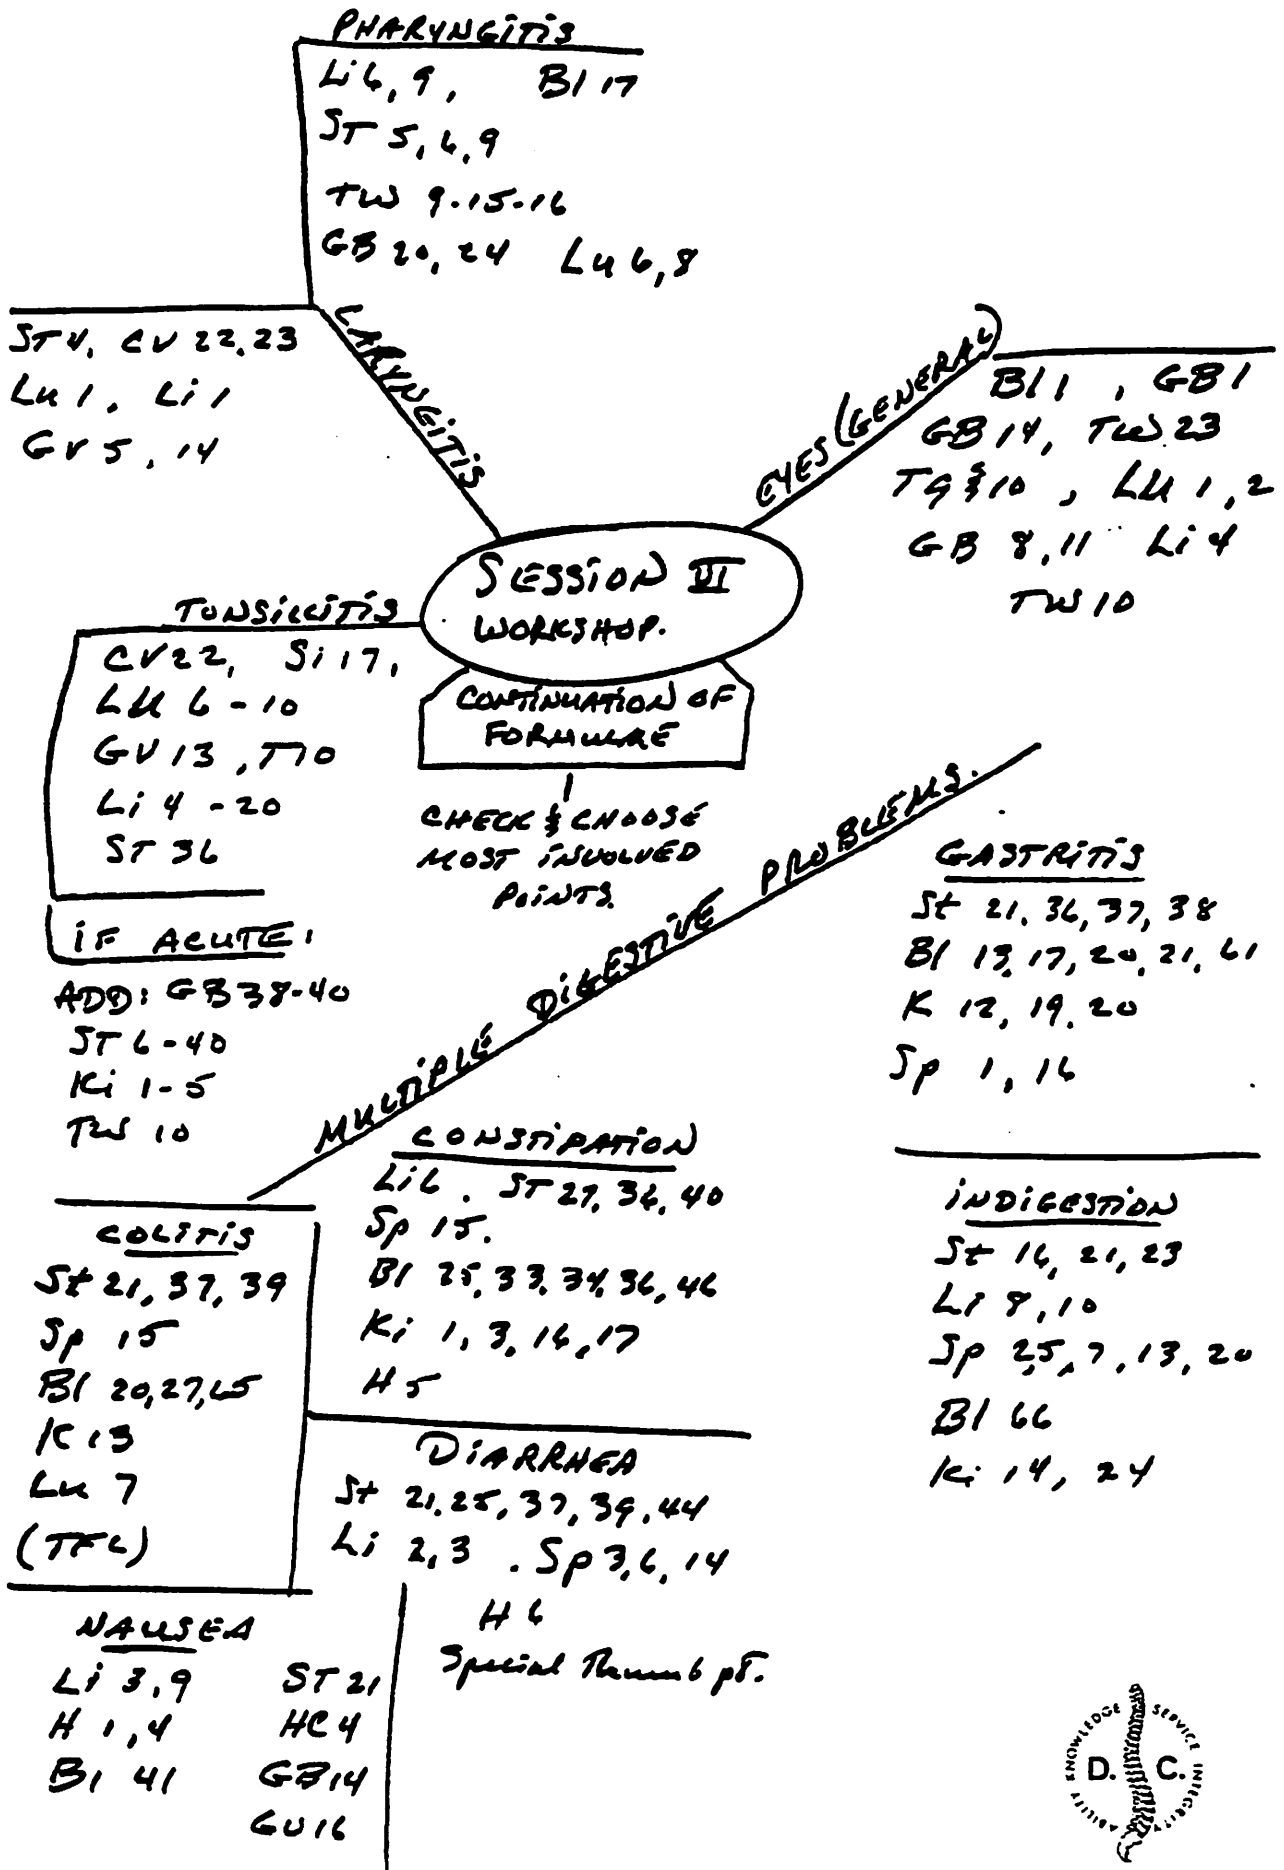 PHARYNGITIS
Li 6, 9, Bl 17
ST 5, 6, 9
TW 9-15-16
GB 20, 24 Lu 6, 8
LARYNGITIS
ST 4, CV 22, 23
Lu 1, Li 1
GV 5, 14
EYES (GENERAL)
Bl 1, GB 1
GB 14, TW 23
T9 & 10, LU 1, 2
GB 8, 11 Li 4
TW 10
SESSION VI
WORKSHOP.
CONTINUATION OF
FORMULAE
CHECK & CHOOSE
MOST INVOLVED
POINTS.
TONSILLITIS
CV 22, Si 17,
LU 6-10
GV 13, T10
Li 4-20
ST 36
IF ACUTE:
ADD: GB 38-40
ST 6-40
Ki 1-5
TW 10
MULTIPLE DIGESTIVE PROBLEMS.
GASTRITIS
St 21, 36, 37, 38
Bl 13, 17, 20, 21, 61
K 12, 19, 20
Sp 1, 16
INDIGESTION
St 16, 21, 23
Li 8, 10
Sp 2,5, 7, 13, 20
Bl 66
Ki 14, 24
CONSTIPATION
Li 6. ST 27, 36, 40
Sp 15.
Bl 25, 33, 34, 36, 46
Ki 1, 3, 16, 17
H 5
COLITIS
St 21, 37, 39
Sp 15
Bl 20, 27, 65
K 13
Lu 7
(TFL)
DIARRHEA
St 21, 25, 37, 39, 44
Li 2, 3. Sp 3, 6, 14
H 6
Special Thumb pt.
NAUSEA
Li 3, 9 ST 21
H 1, 4 HC 4
Bl 41 GB 14
GV 16
KNOWLEDGE SERVICE INTEGRITY ABILITY
D. C.